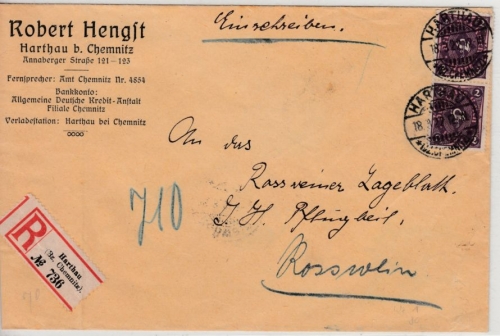 Robert Hengst
Harthau b. Chemnitz
Annaberger Straße 121–123
Fernsprecher: Amt Chemnitz Nr. 4854
Bankkonto:
Allgemeine Deutsche Kredit-Anstalt
Filiale Chemnitz
Verladestation: Harthau bei Chemnitz
Einschreiben.
HARTHAU
18.3.
2
HARTHAU
18.3.
2
An das
Rossweiner Tageblatt.
J. H. Pflugbeil.
Rosswein
710
R
Harthau
(Bz. Chemnitz).
№ 736